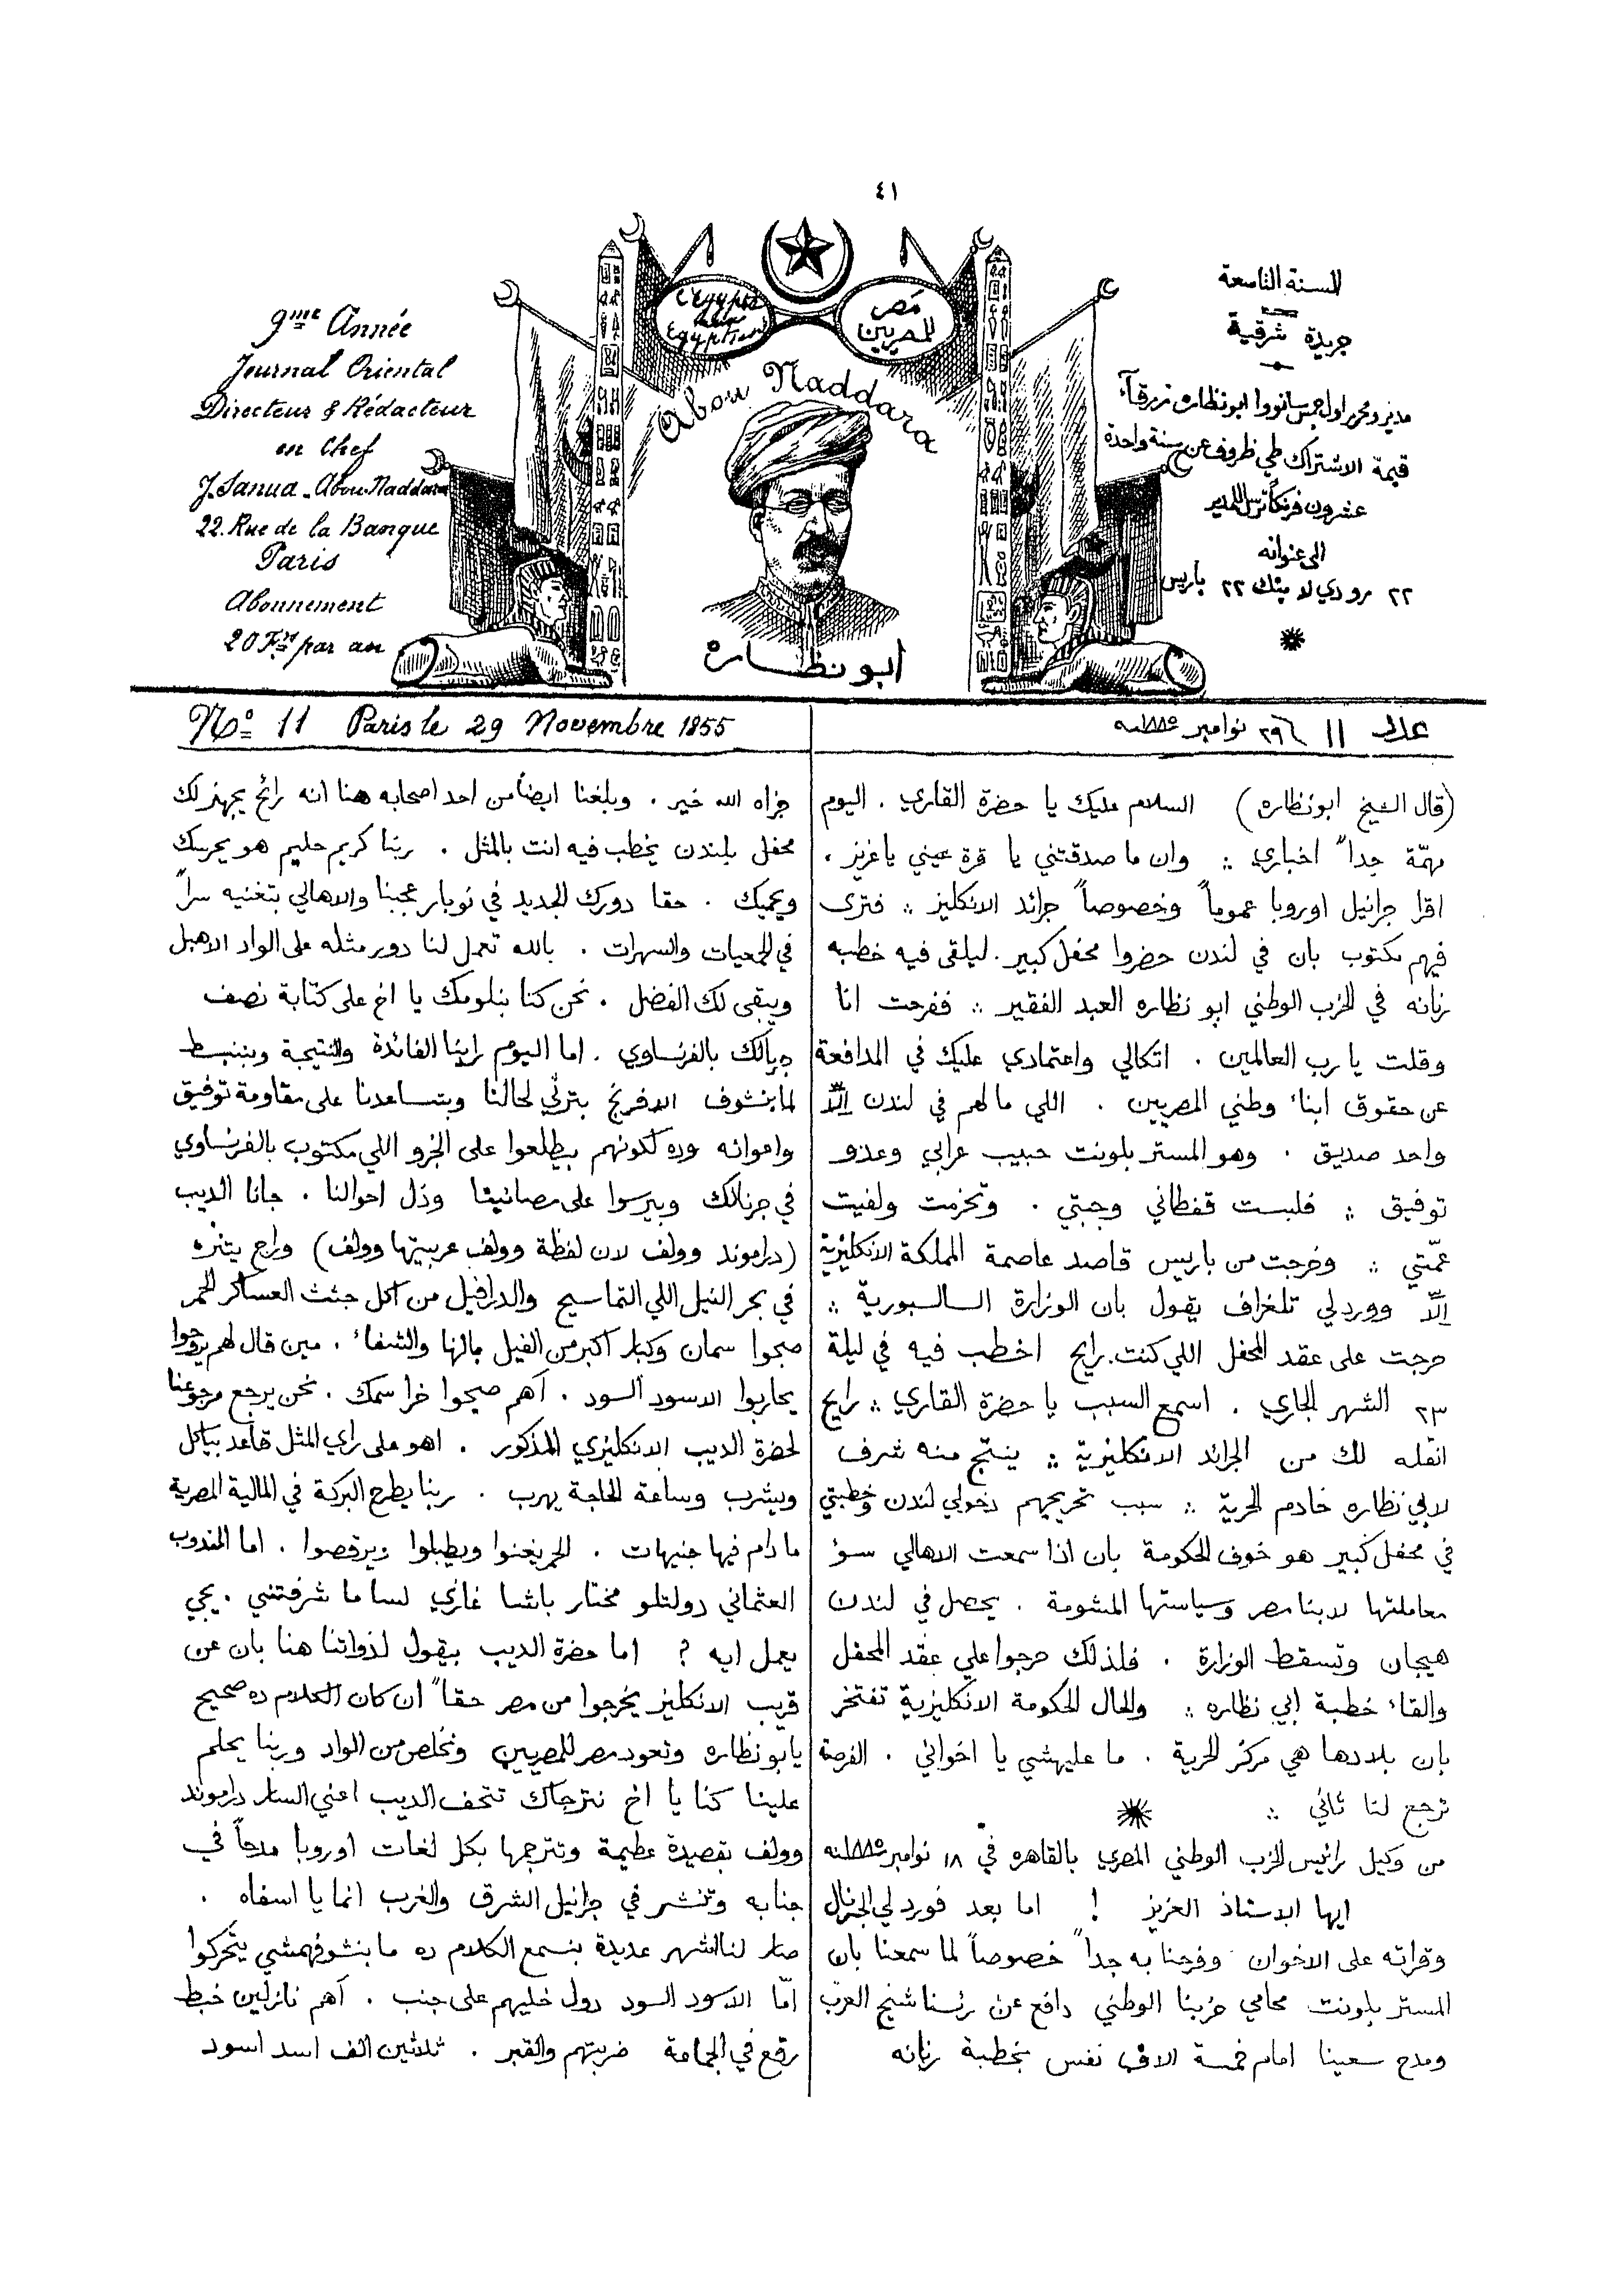 ٤١
9me Année
Journal Oriental
Directeur & Rédacteur
en Chef
J. Sanua - Abou Naddara
22. Rue de la Banque
Paris
Abonnement
20 Frs par an
l'Egypte
Egyptiens
مصر
للمصريين
Abou Naddara
ابو نظاره
السنة التاسعة
جريدة شرقية
مدير ومحرر اول جمس سانووا ابو نظاره زرقآء
قيمة الاشتراك طي ظروف عن سنة واحدة
عشرون فرنكاً ترسل للمدير
الى عنوانه
٢٢ رو دي لا بنك ٢٢ باريس
No 11 Paris le 29 Novembre 1855
عدد ١١ ٢٩ نوامبر سنه ١٨٨٥
(قال الشيخ ابو نظاره) السلام عليك يا حضرة القاري . اليوم
مهمّة جداً اخباري :: وان ما صدقتني يا قرة عيني يا عزيز .
اقرا جرانيل اوروبا عموماً وخصوصاً جرائد الانكليز :: فترى
فيهم مكتوب بان في لندن حضروا محفل كبير . ليلقى فيه خطبه
رنانه في الحزب الوطني ابو نظاره العبد الفقير :: ففرحت انا
وقلت يا رب العالمين . اتكالي واعتمادي عليك في المدافعة
عن حقوق ابناء وطني المصريين . اللي ما لهم في لندن إلّا
واحد صديق . وهو المستر بلونت حبيب عرابي وعدو
توفيق :: فلبست قفطاني وجبتي . وتحزمت ولفيت
عمّتي :: وخرجت من باريس قاصد عاصمة المملكة الانكليزية
إلّا وورد لي تلغراف يقول بان الوزارة السالسبورية ::
حرجت على عقد المحفل اللي كنت رايح اخطب فيه في ليلة
٢٣ الشهر الجاري . اسمع السبب يا حضرة القاري :: رايح
انقله لك من الجرائد الانكليزية :: ينتج منه شرف
لابي نظاره خادم الحرية :: سبب تحريجهم دخولي لندن وخطبتي
في محفل كبير هو خوف الحكومة بان اذا سمعت الاهالي سوء
معاملتها لابنا مصر وسياستها المشومة . يحصل في لندن
هيجان وتسقط الوزارة . فلذلك حرجوا على عقد المحفل
والقاء خطبة ابي نظاره :: والحال الحكومة الانكليزية تفتخر
بان بلادها هي مركز الحرية . ما عليهشي يا اخواني . الفرصة
ترجع لنا ثاني ::
من وكيل رائيس الحزب الوطني المصري بالقاهره في ١٨ نوامبر سنه ١٨٨٥
ايها الاستاذ العزيز ! اما بعد فورد لي الجرنال
وقراته على الاخوان وفرحنا به جداً خصوصاً لما سمعنا بان
المستر بلونت محامي حزبنا الوطني دافع عن رئسنا شيخ العرب
ومدح سعينا امام خمسة الاف نفس بخطبة رنانه
جزاه الله خير . وبلغنا ايضاً من احد اصحابه هنا انه رائح يجهز لك
محفل بلندن يخطب فيه انت بالمثل . ربنا كريم حليم هو يحرسك
ويحميك . حقا دورك الجديد في نوبار عجبنا والاهالي بتغنيه سراً
في الجمعيات والسهرات . بالله تعمل لنا دور مثله على الواد الاهبل
ويبقى لك الفضل . نحن كنا بنلومك يا اخ على كتابة نصف
جرنالك بالفرنساوي . اما اليوم راينا الفائدة والنتيجة وبننبسط
لما بنشوف الافرنج بترثي لحالنا وبتساعدنا على مقاومة توفيق
واعوانه وده لكونهم بيطلعوا على الجزو اللي مكتوب بالفرنساوي
في جرنالك وبيرسوا على مصائبنا وذل احوالنا . جانا الديب
(دراموند وولف لان لفظة وولف عربيتها وولف) وراح يتنزه
في بحر النيل اللي التماسيح والدرافيل من اكل جثث العساكر الحمر
صبحوا سمان وكبار اكبر من الفيل بالهنا والشفاء . مين قال لهم يروحوا
يحاربوا الاسود السود . أهم صبحوا خرا سمك . نحن يرجع مرجوعنا
لحضرة الديب الانكليزي المذكور . اهو على راي المثل قاعد بياكل
ويشرب وساعة الحاجة يهرب . ربنا يطرح البركة في المالية المصرية
ما دام فيها جنيهات . الحمر يغنوا ويطبلوا ويرقصوا . اما المندوب
العثماني دولتلو مختار باشا غازي لسا ما شرفتني . يجي
يعمل ايه ? اما حضرة الديب بيقول لذواتنا هنا بان عن
قريب الانكليز يخرجوا من مصر حقاً ان كان الكلام ده صحيح
يابو نظاره وتعود مصر للمصريين ونخلص من الواد وربنا يحلم
علينا كنا يا اخ نترجاك تتحف الديب اعني السار دراموند
وولف بقصيدة عظيمة وتترجمها بكل لغات اوروبا مدحاً في
جنابه وتنشر في جرانيل الشرق والغرب انما يا اسفاه .
صار لنا اشهر عديدة بنسمع الكلام ده ما بنشوفهمشي يتحركوا
امّا الاسود السود دول خليهم على جنب . أهم نازلين خبط
رقع في الجماعة ضربتهم والقبر . ثلاثين الف اسد اسود